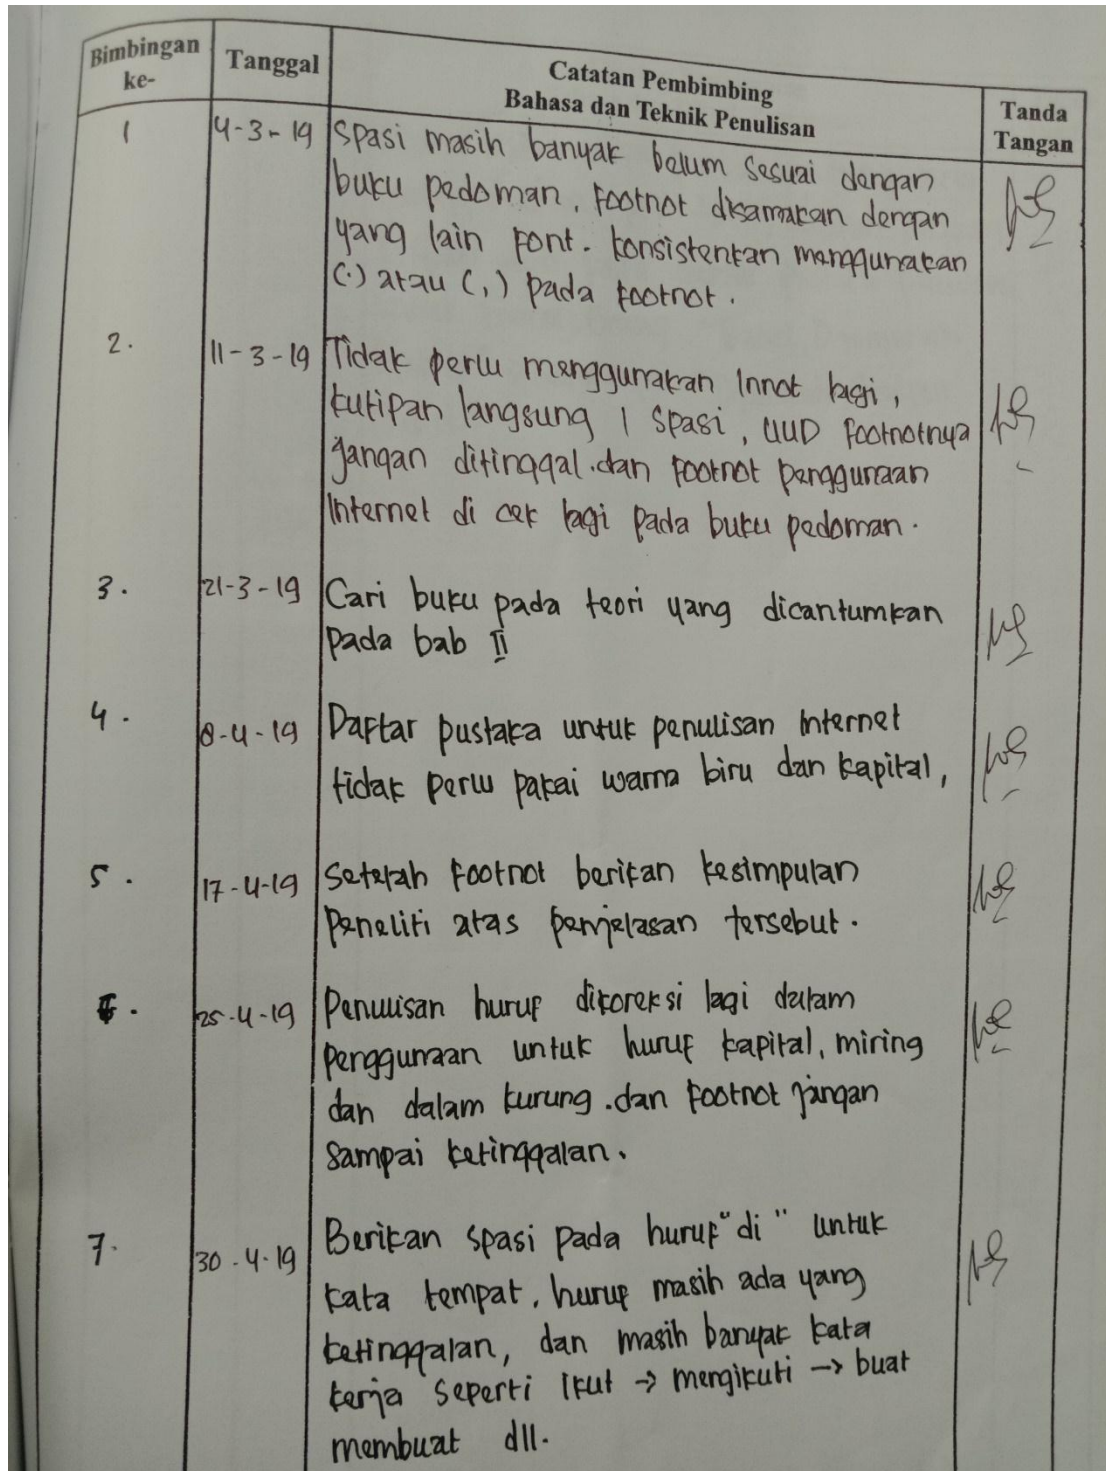 Bimbingan ke-
Tanggal
Catatan Pembimbing
Bahasa dan Teknik Penulisan
Tanda Tangan
1
4-3-19
Spasi masih banyak belum sesuai dengan
buku pedoman, footnot disamakan dengan
yang lain font. konsistenkan menggunakan
(.) atau (,) pada footnot.
2.
11-3-19
Tidak perlu menggunakan Innot lagi,
kutipan langsung 1 spasi, UUD footnotnya
jangan ditinggal.dan footnot penggunaan
Internet di cek lagi pada buku pedoman.
3.
21-3-19
Cari buku pada teori yang dicantumkan
pada bab II
4.
8-4-19
Daftar pustaka untuk penulisan internet
tidak perlu pakai warna biru dan kapital,
5.
17-4-19
Setelah footnot berikan kesimpulan
Peneliti atas penjelasan tersebut.
6.
25-4-19
Penulisan huruf dikoreksi lagi dalam
penggunaan untuk huruf kapital, miring
dan dalam kurung.dan footnot jangan
sampai ketinggalan.
7.
30-4-19
Berikan spasi pada huruf "di" untuk
kata tempat, huruf masih ada yang
ketinggalan, dan masih banyak kata
kerja seperti Ikut → mengikuti → buat
membuat dll.